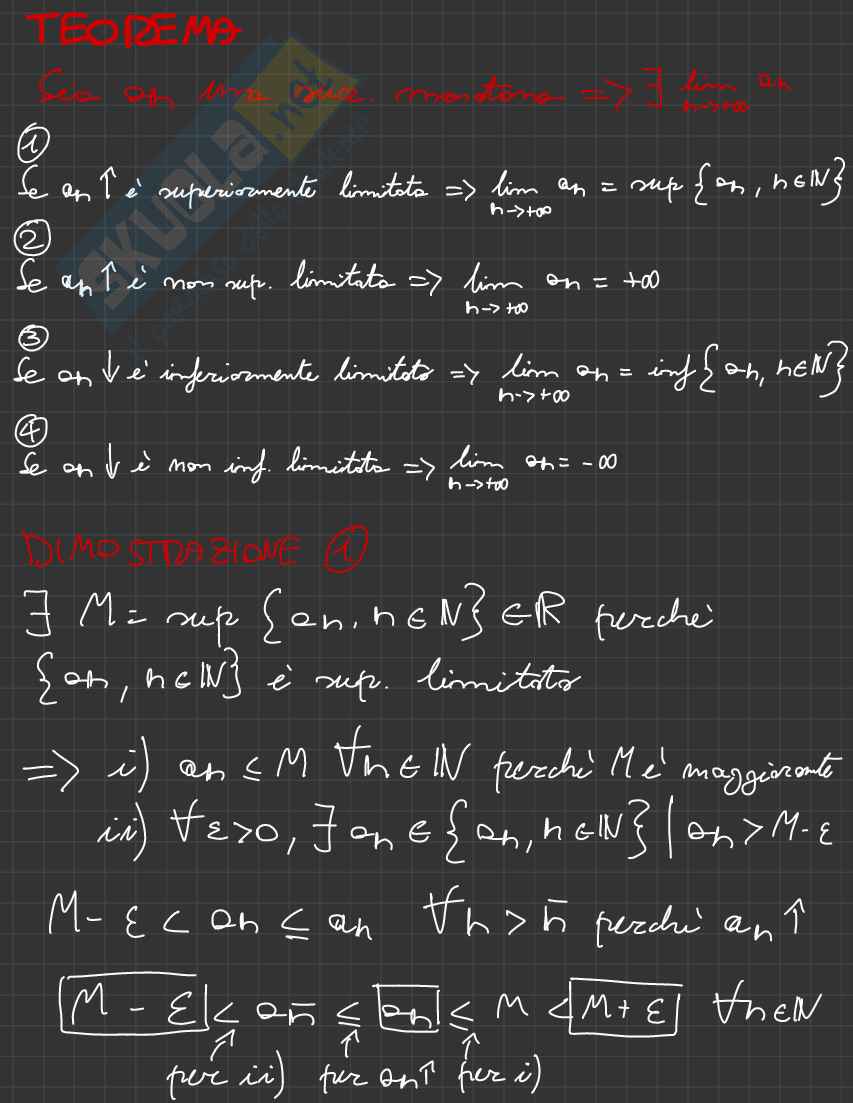 TEOREMA
Sia an una succ. monotona => ∃ lim n->+∞ an
①
Se an ↑ è superiormente limitata => lim n->+∞ an = sup {an, n∈ℕ}
②
Se an ↑ è non sup. limitata => lim n->+∞ an = +∞
③
Se an ↓ è inferiormente limitata => lim n->+∞ an = inf {an, n∈ℕ}
④
Se an ↓ è non inf. limitata => lim n->+∞ an = -∞
DIMOSTRAZIONE ①
∃ M = sup {an, n∈ℕ} ∈ℝ perché
{an, n∈ℕ} è sup. limitato
=> i) an ≤ M ∀n∈ℕ perché M è maggiorante
ii) ∀ε>0, ∃ an ∈ {an, n∈ℕ} | an > M-ε
M-ε < an ≤ an ∀n > n̄ perché an ↑
M-ε < an̄ ≤ an ≤ M < M+ε ∀n∈ℕ
per ii) per an↑ per i)
SKUOLA.net